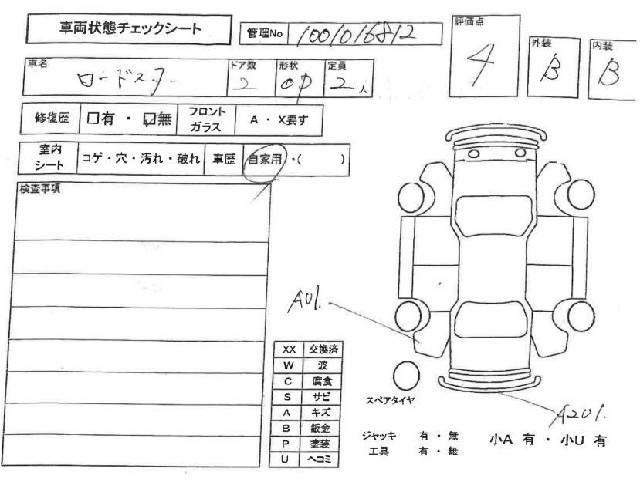 車両状態チェックシート
管理No 1001016812
評価点 4
外装 B
内装 B
車名 ロードスター
ドア数 2
形状 OP
定員 2人
修復歴 □有・☑無
フロントガラス A・X要す
室内シート コゲ・穴・汚れ・破れ
車歴 自家用・( )
検査事項
A01.
XX 交換済
W 波
C 腐食
S サビ
A キズ
B 鈑金
P 塗装
U ヘコミ
スペアタイヤ
A201.
ジャッキ 有・無
工具 有・無
小A 有・小U 有